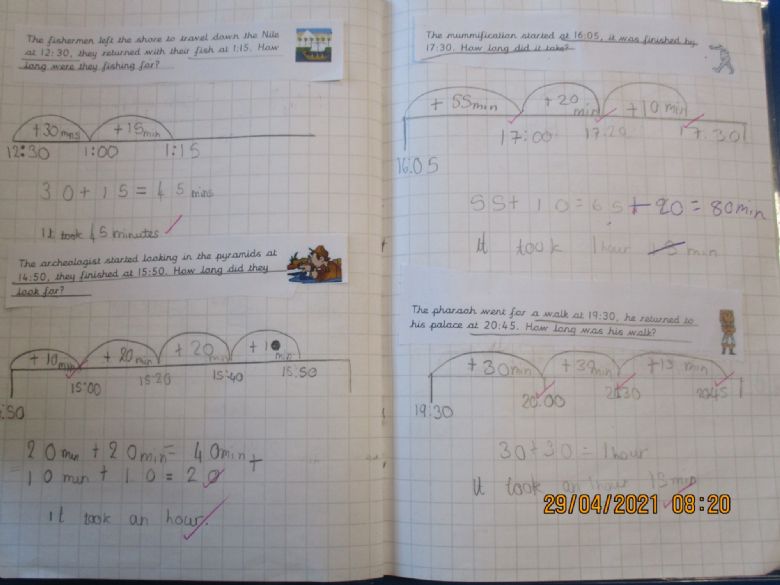 The fishermen left the shore to travel down the Nile
at 12:30, they returned with their fish at 1:15. How
long were they fishing for?
+30mns +15min
12:30 1:00 1:15
30+15=45 mins
It took 45 minutes
The archeologist started looking in the pyramids at
14:50, they finished at 15:50. How long did they
look for?
+10min +20min +20min +10 min
15:00 15:20 15:40 15:50
:50
20min + 20min = 40min +
10 min + 10 = 20
It took an hour.
The mummification started at 16:05, it was finished by
17:30. How long did it take?
+55min +20 min +10 min
17:00 17:20 17:30
16:05
55+10=65+20=80min
It took 1 hour min
The pharaoh went for a walk at 19:30, he returned to
his palace at 20:45. How long was his walk?
+30min +30min +15 min
19:30 20:00 20:45
30+30=1hour
It took an 1hour 15min
29/04/2021 08:20